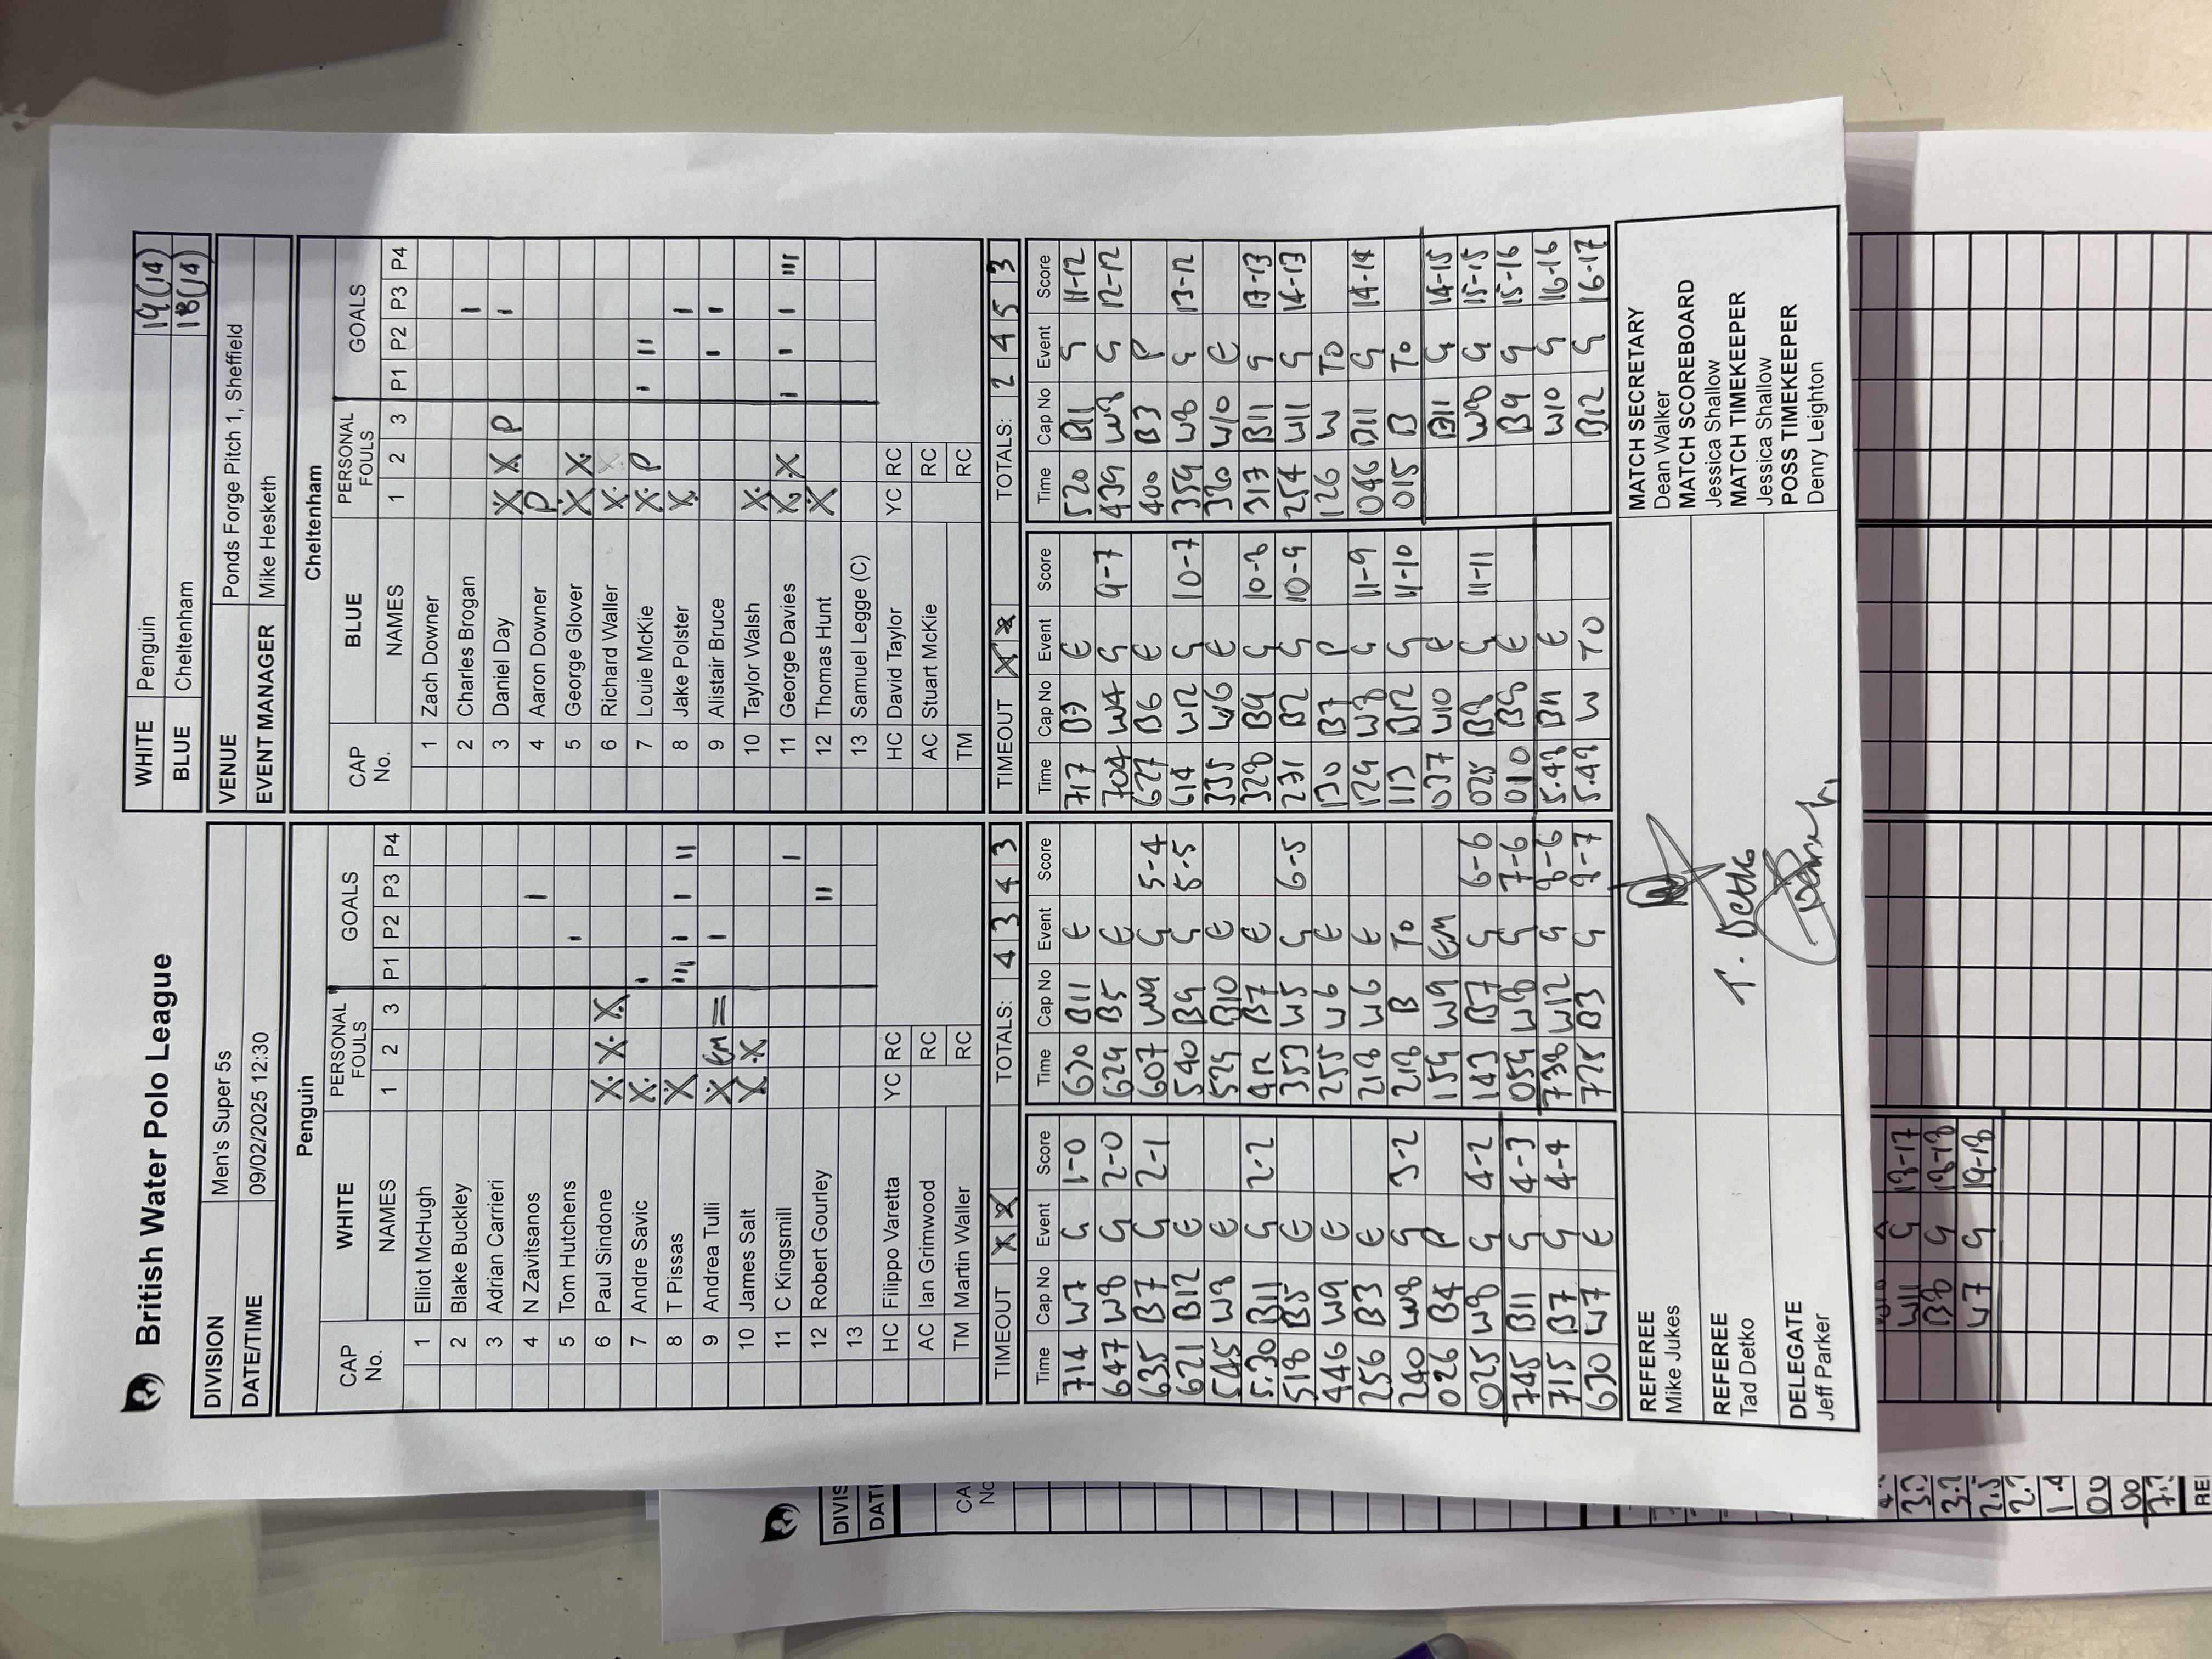 British Water Polo League
WHITE Penguin 19(14)
BLUE Cheltenham 18(14)
DIVISION Men's Super 5s
DATE/TIME 09/02/2025 12:30
VENUE Ponds Forge Pitch 1, Sheffield
EVENT MANAGER Mike Hesketh
Penguin
CAP No. WHITE NAMES PERSONAL FOULS 1 2 3 GOALS P1 P2 P3 P4
1 Elliot McHugh
2 Blake Buckley
3 Adrian Carrieri
4 N Zavitsanos I
5 Tom Hutchens I
6 Paul Sindone X. X. X.
7 Andre Savic X. I
8 T Pissas X III I I II
9 Andrea Tulli X EM = I
10 James Salt X X
11 C Kingsmill I
12 Robert Gourley II
13
HC Filippo Varetta YC RC
AC Ian Grimwood RC
TM Martin Waller RC
TIMEOUT X X TOTALS: 4 3 4 3
Cheltenham
CAP No. BLUE NAMES PERSONAL FOULS 1 2 3 GOALS P1 P2 P3 P4
1 Zach Downer
2 Charles Brogan I
3 Daniel Day X X P I
4 Aaron Downer P
5 George Glover X X
6 Richard Waller X. X
7 Louie McKie X. P I II
8 Jake Polster X. I
9 Alistair Bruce I I
10 Taylor Walsh X.
11 George Davies X. X I I I III
12 Thomas Hunt X
13 Samuel Legge (C)
HC David Taylor YC RC
AC Stuart McKie RC
TM RC
TIMEOUT X X TOTALS: 2 4 5 3
Time Cap No Event Score
714 W7 G 1-0
647 W8 G 2-0
635 B7 G 2-1
621 B12 E
545 W8 E
5.30 B11 G 2-2
518 B5 E
446 W9 E
256 B3 E
240 W8 G 3-2
026 B4 P
025 W8 G 4-2
745 B11 G 4-3
715 B7 G 4-4
630 W7 E
Time Cap No Event Score
630 B11 E
624 B5 E
607 W9 G 5-4
540 B9 G 5-5
529 B10 E
412 B7 E
353 W5 G 6-5
255 W6 E
218 W6 E
218 B TO
159 W9 EM
143 B7 G 6-6
059 W8 G 7-6
738 W12 G 8-6
725 B3 G 8-7
Time Cap No Event Score
717 B7 E
704 W4 G 9-7
627 B6 E
614 W12 G 10-7
335 W6 E
328 B9 G 10-8
231 B2 G 10-9
130 B7 P
129 W8 G 11-9
113 B12 G 11-10
037 W10 E
025 B8 G 11-11
010 B8 E
5.49 B11 E
5.49 W TO
Time Cap No Event Score
520 B11 G 11-12
439 W8 G 12-12
400 B3 P
359 W8 G 13-12
320 W10 E
317 B11 G 13-13
254 W11 G 14-13
126 W TO
046 B11 G 14-14
015 B TO
B11 G 14-15
W8 G 15-15
B9 G 15-16
W10 G 16-16
B12 G 16-17
REFEREE
Mike Jukes
REFEREE
Tad Detko T. Detko
DELEGATE
Jeff Parker
MATCH SECRETARY
Dean Walker
MATCH SCOREBOARD
Jessica Shallow
MATCH TIMEKEEPER
Jessica Shallow
POSS TIMEKEEPER
Denry Leighton
W11 G 18-17
B8 G 18-18
W7 G 19-18
DIVIS
DATI
CAI
Nc
RE